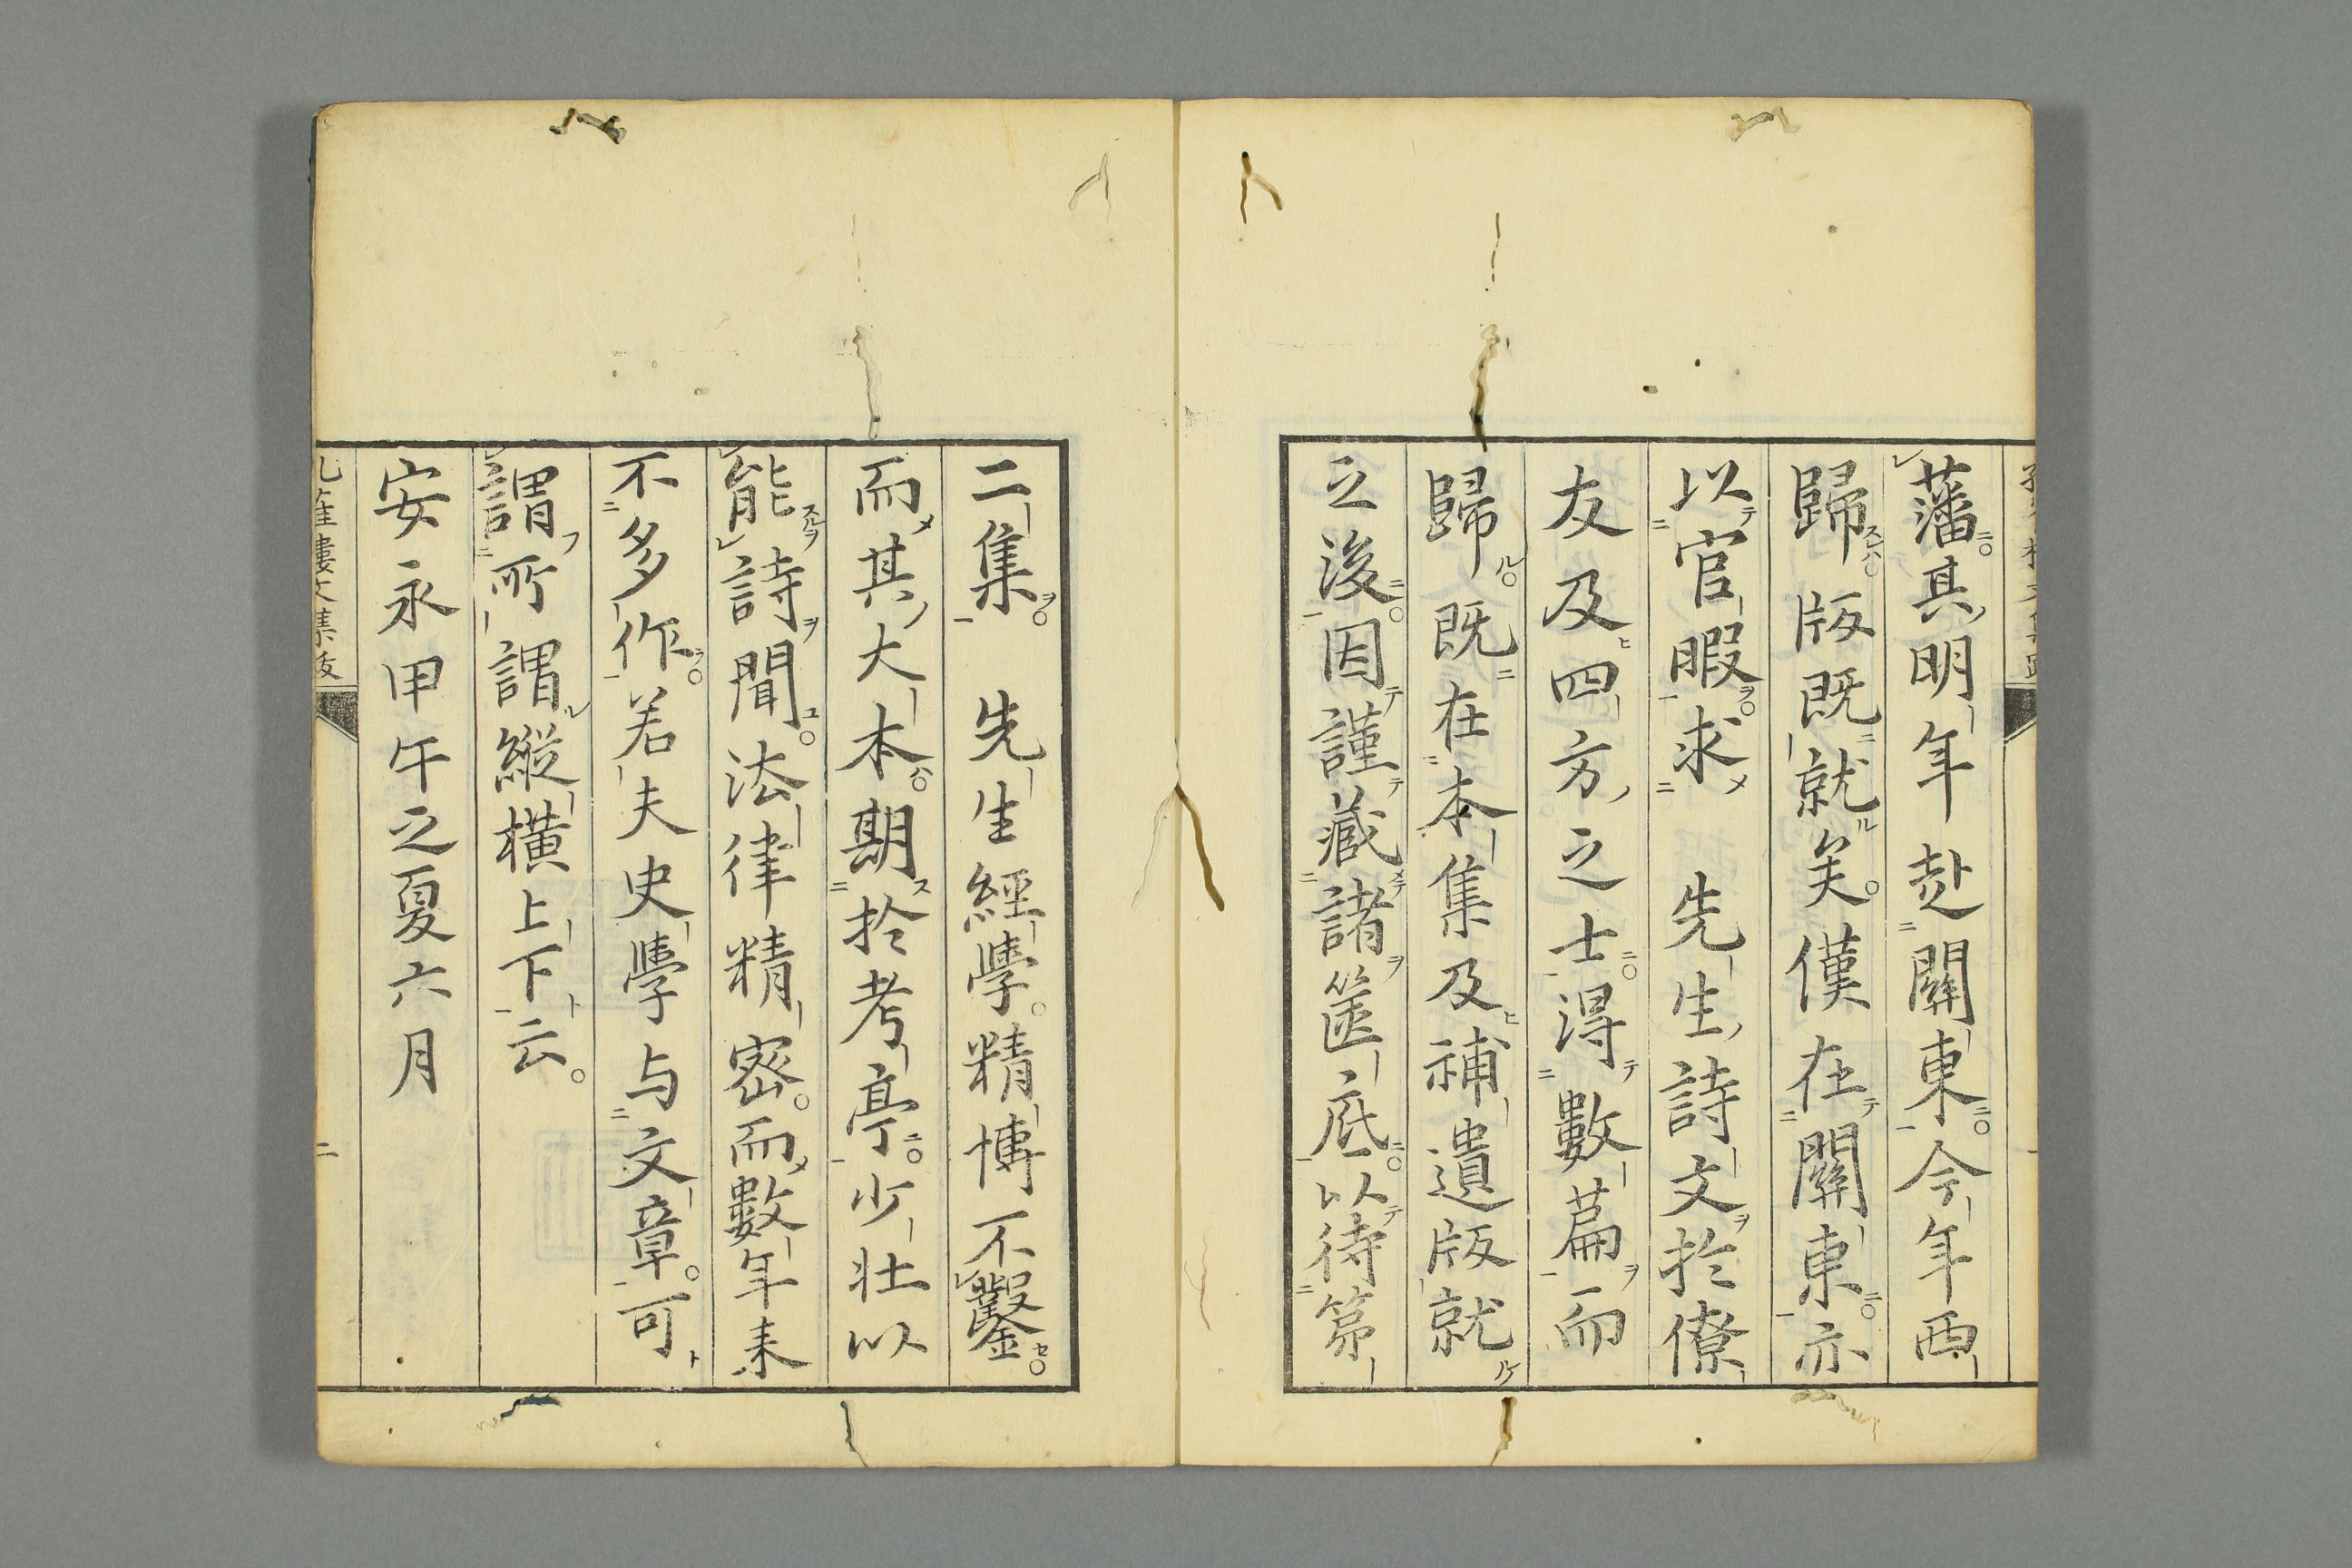 藩其明年赴關東今年西
歸版既就矣僕在關東亦
以官暇求　先生詩文於僚
友及四方之士得數篇而
歸既在本集及補遺版就
之後因謹藏諸篋底以待第
二集　先生經學精博不鑿
而其大本期於考亭少壯以
能詩聞法律精密而數年來
不多作若夫史學与文章可
謂所謂縱橫上下云
安永甲午之夏六月
二